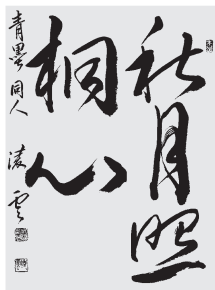 秋月照
桐心
青墨同人
凌雲